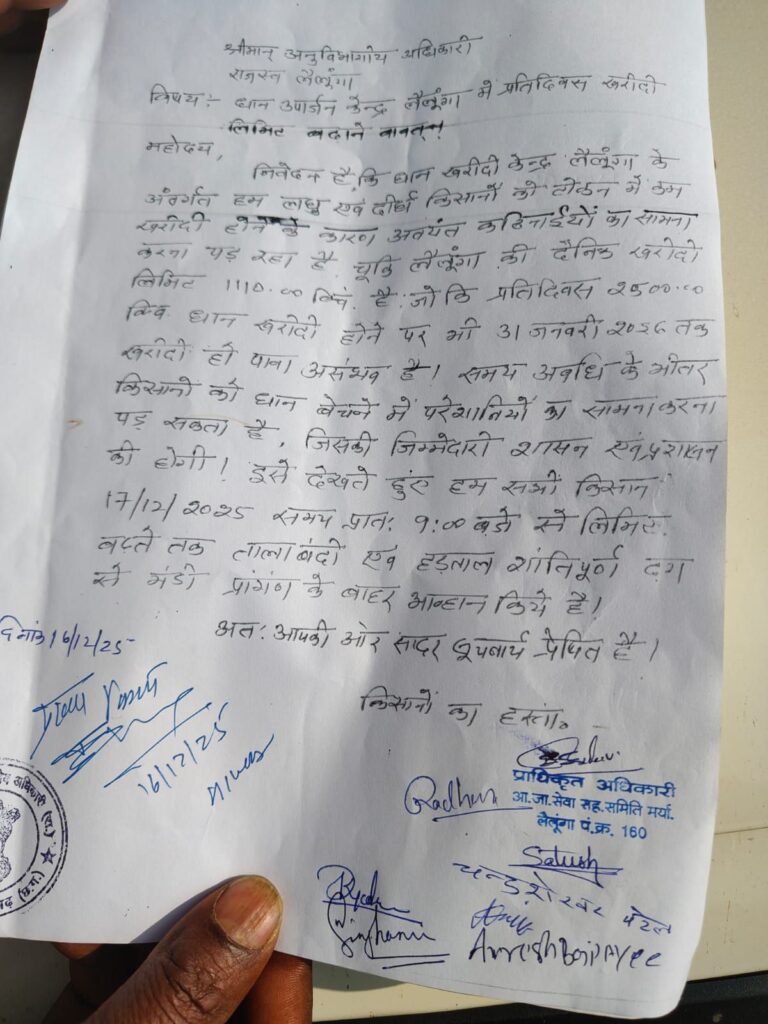 श्रीमान् अनुविभागीय अधिकारी
राजस्व लैलूंगा
विषय:- धान उपार्जन केन्द्र लैलूंगा में प्रतिदिवस खरीदी
लिमिट बढाने बाबत्।
महोदय,
निवेदन है, कि धान खरीदी केन्द्र लैलूंगा के
अंतर्गत हम लाधु एवं दीर्घ किसानों को टोकन में कम
खरीदी होने के कारण अत्यंत कठिनाईयों का सामना
करना पड़ रहा है. चूकि लैलूंगा की दैनिक खरीदी
लिमिट 1110.00 क्वि. है. जो कि प्रतिदिवस 2500.00
क्वि धान खरीदी होने पर भी 31 जनवरी 2026 तक
खरीदी हो पाना असंभव है। समय अवधि के भीतर
किसानो को धान बेचने में परेशानियों का सामना करना
पड़ सकता है, जिसकी जिम्मेदारी शासन एवं प्रशासन
की होगी। इसे देखते हुएं हम सभी किसान
17/12/2025 समय प्रात: 9:00 बजे से लिमिट
बढ़ते तक तालाबंदी एवं हड़ताल शांतिपूर्ण ढ़ग
से मंडी प्रांगंण के बाहर आव्हान किये है।
अत: आपकी ओर सादर सूचनार्थ प्रेषित है।
दिनांक 16/12/25
किसानों का हस्ता.
16/12/25
प्राधिकृत अधिकारी
आ.जा.सेवा सह.समिति मर्या.
लैलूंगा पं.क्र. 160
Radhun
Satish
चन्द्रशेखर पटेल
Singhania